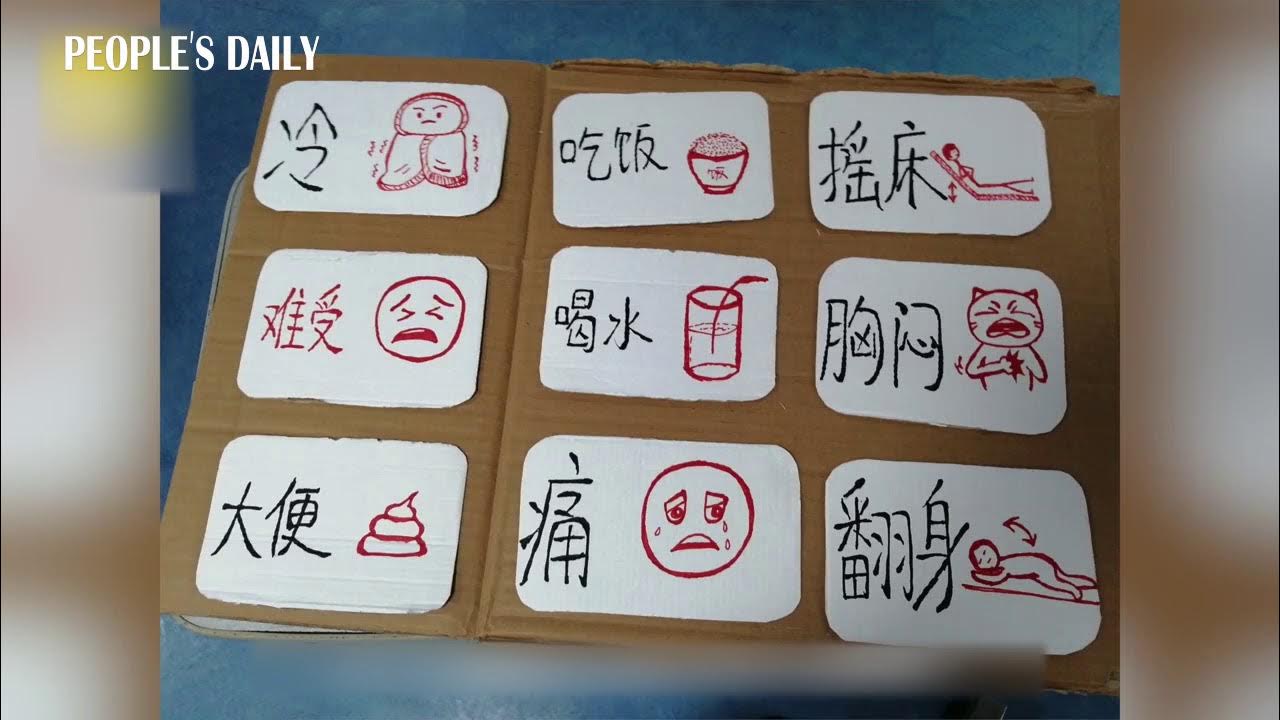 PEOPLE'S DAILY
冷
吃饭
饭
摇床
难受
喝水
胸闷
大便
痛
翻身